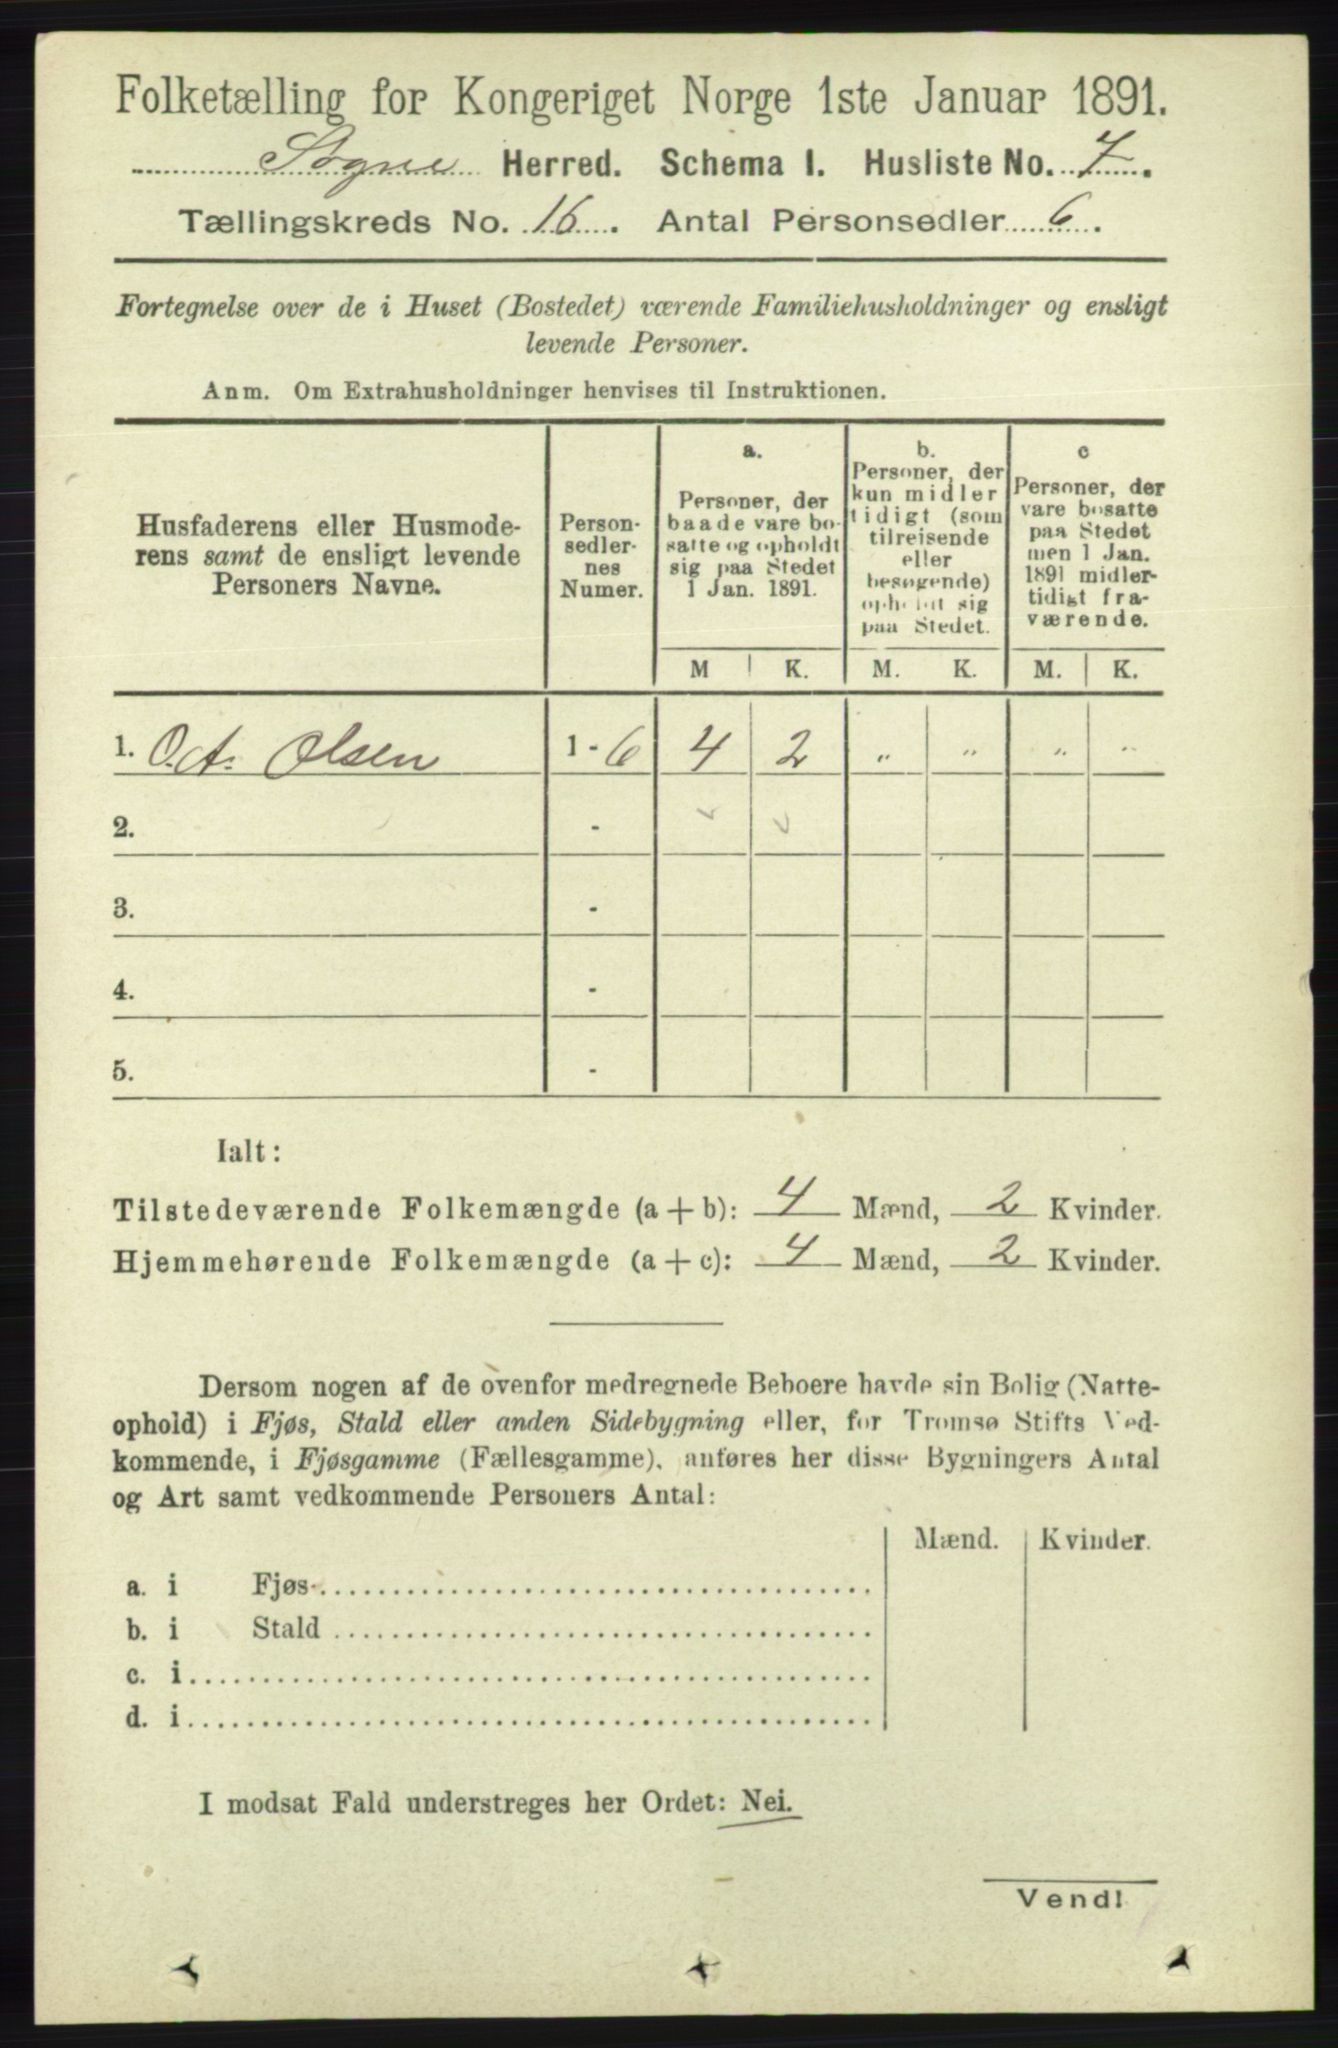 Folketælling for Kongeriget Norge 1ste Januar 1891.
Søgne Herred. Schema I. Husliste No. 7.
Tællingskreds No. 16. Antal Personsedler 6.
Fortegnelse over de i Huset (Bostedet) værende Familiehusholdninger og ensligt
levende Personer.
Anm. Om Extrahusholdninger henvises til Instruktionen.
Husfaderens eller Husmode-
rens samt de ensligt levende
Personers Navne.
Person-
sedler-
nes
Numer.
a.
Personer, der
baade vare bo-
satte og opholdt
sig paa Stedet
1 Jan. 1891.
b.
Personer, der
kun midler
tidigt (som
tilreisende
eller
besøgende)
opholdt sig
paa Stedet.
c
Personer, der
vare bosatte
paa Stedet
men 1 Jan.
1891 midler-
tidigt fra-
værende.
M K. M. K. M. K.
1. O. A. Olsen 1 - 6 4 2 „ „ „ „
2. -
3. -
4. -
5. -
Ialt:
Tilstedeværende Folkemængde (a + b): 4 Mænd, 2 Kvinder.
Hjemmehørende Folkemængde (a + c): 4 Mænd, 2 Kvinder.
Dersom nogen af de ovenfor medregnede Beboere havde sin Bolig (Natte-
ophold) i Fjøs, Stald eller anden Sidebygning eller, for Tromsø Stifts Ved-
kommende, i Fjøsgamme (Fællesgamme), anføres her disse Bygningers Antal
og Art samt vedkommende Personers Antal:
Mænd. Kvinder.
a. i Fjøs
b. i Stald
c. i
d. i
I modsat Fald understreges her Ordet: Nei.
Vend!